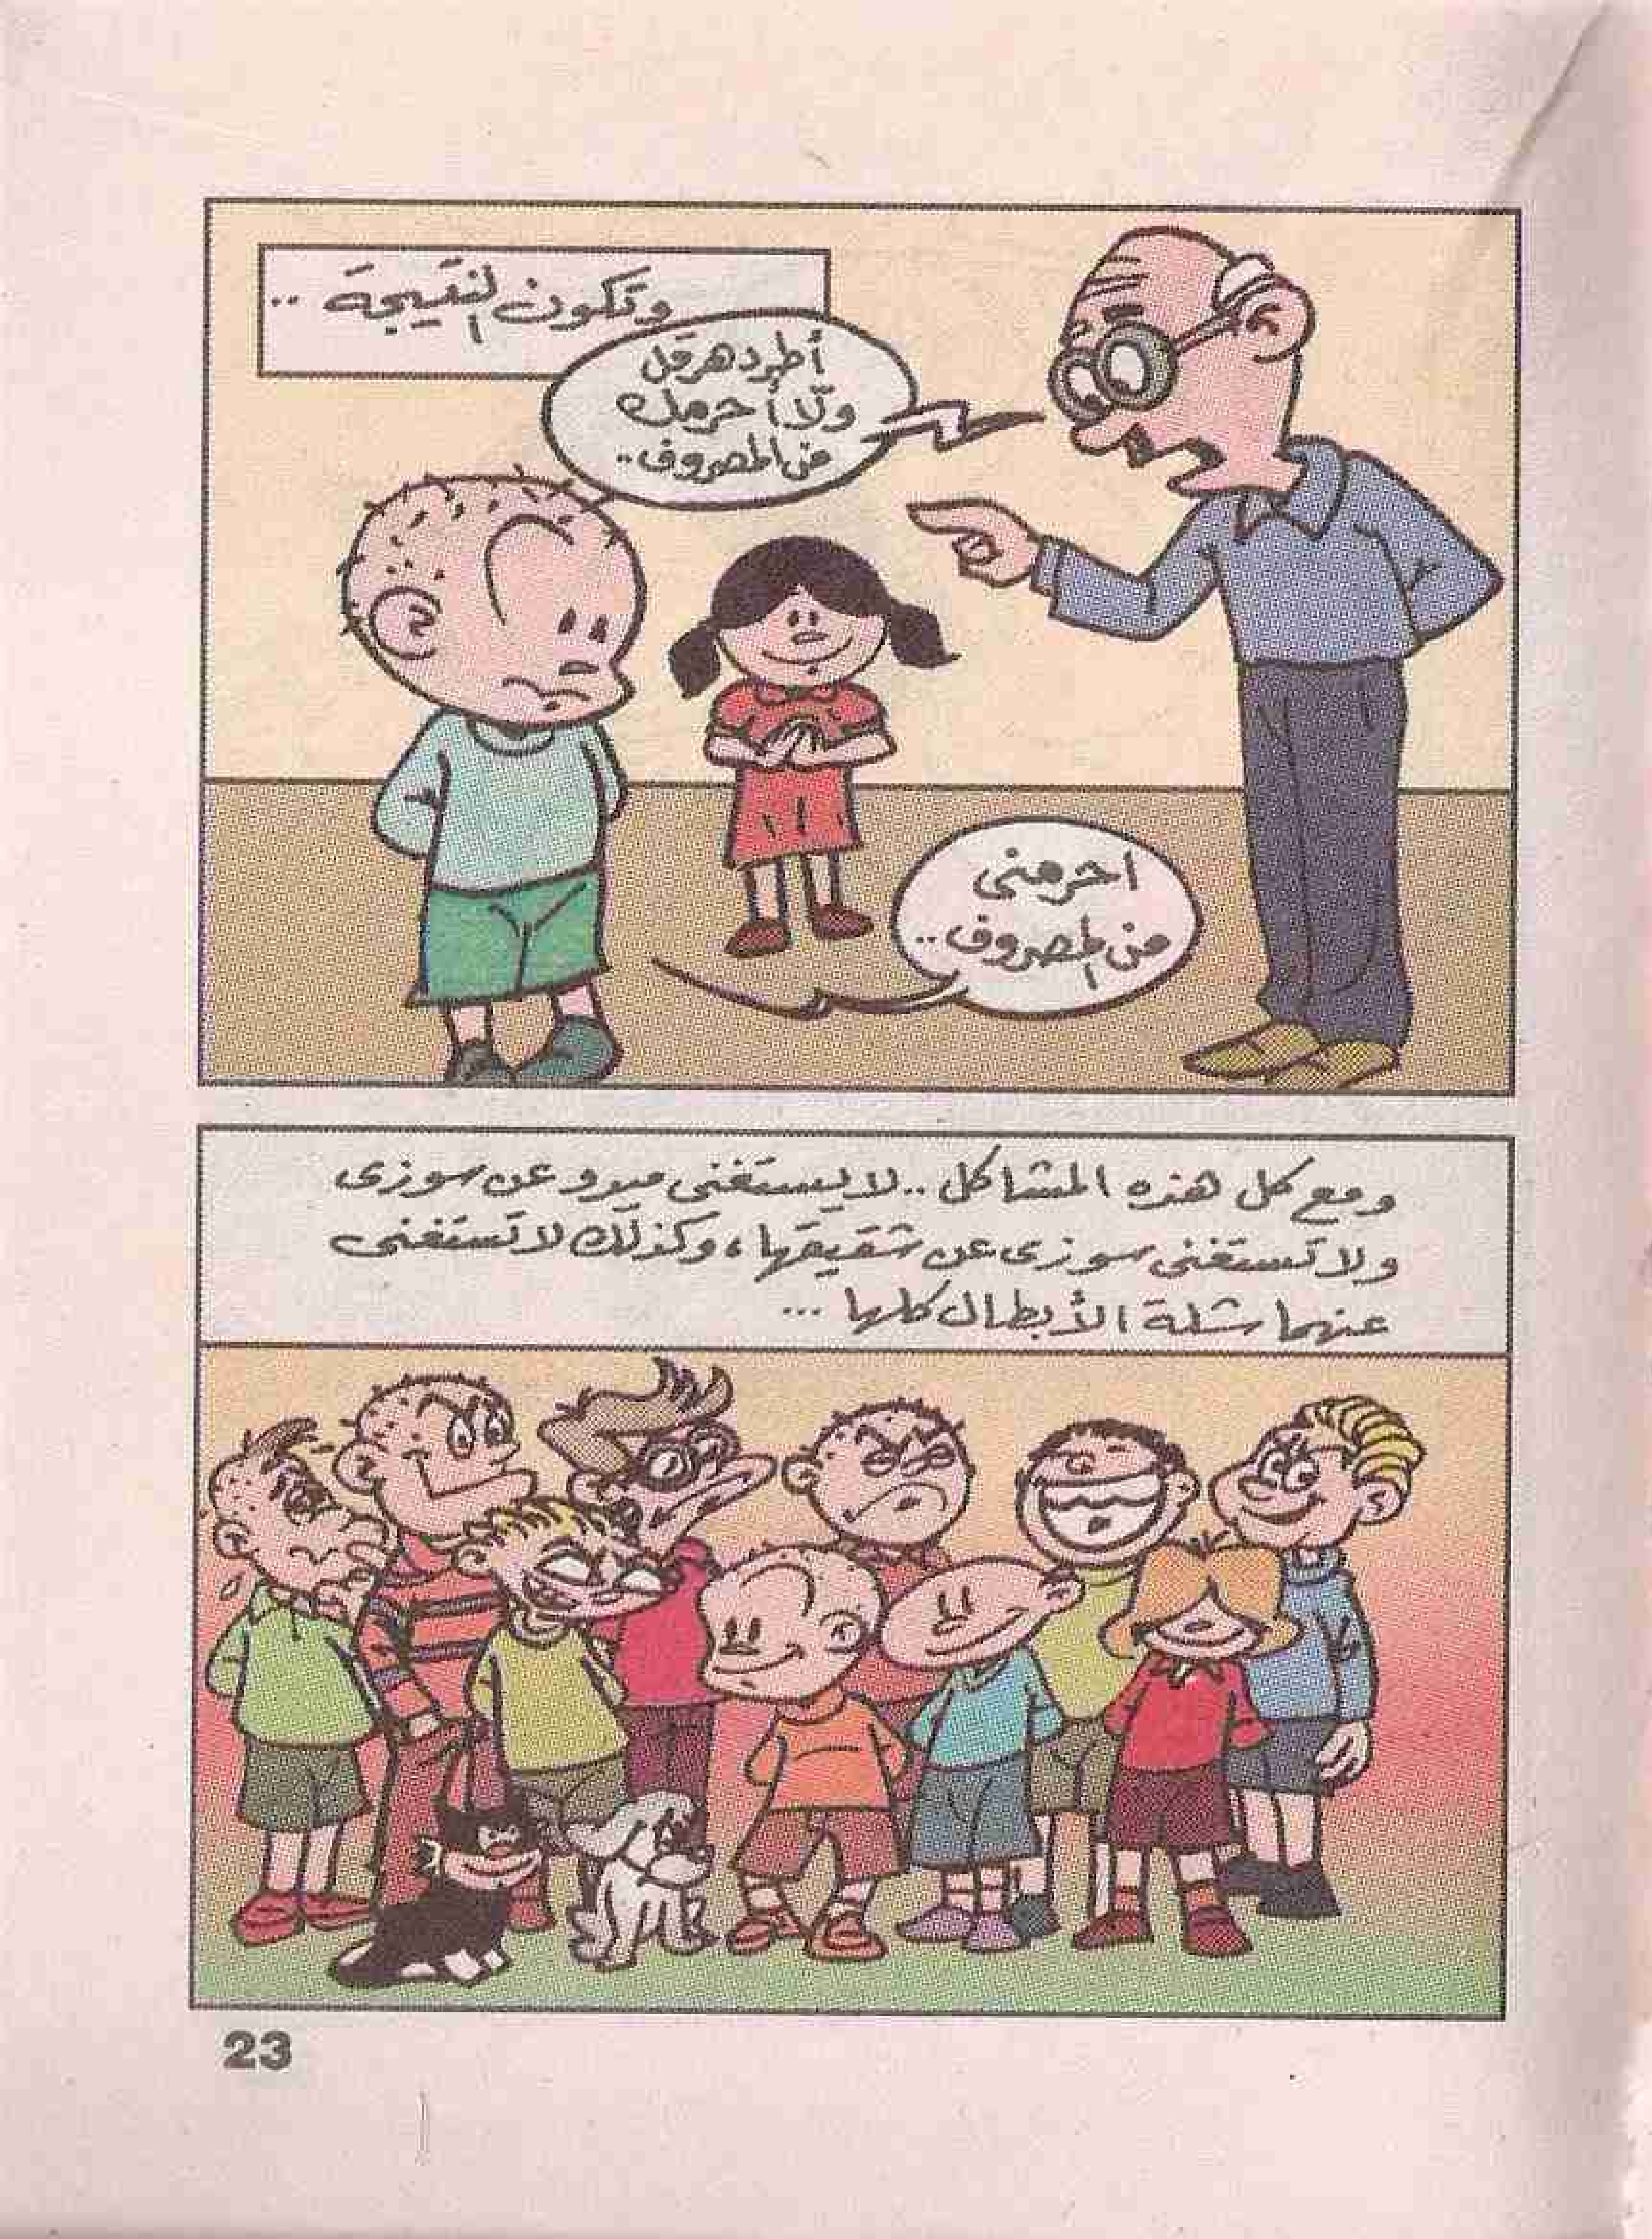 وتكون النتيجة ..
أطرد هرقل
ولّا أحرمك
من المصروف..
احرمنى
من المصروف..
ومع كل هذه المشاكل .. لا يستغنى ميدو عن سوزى
ولا تستغنى سوزى عن شقيقها، وكذلك لا تستغنى
عنهما شلة الأبطال كلها ...
23